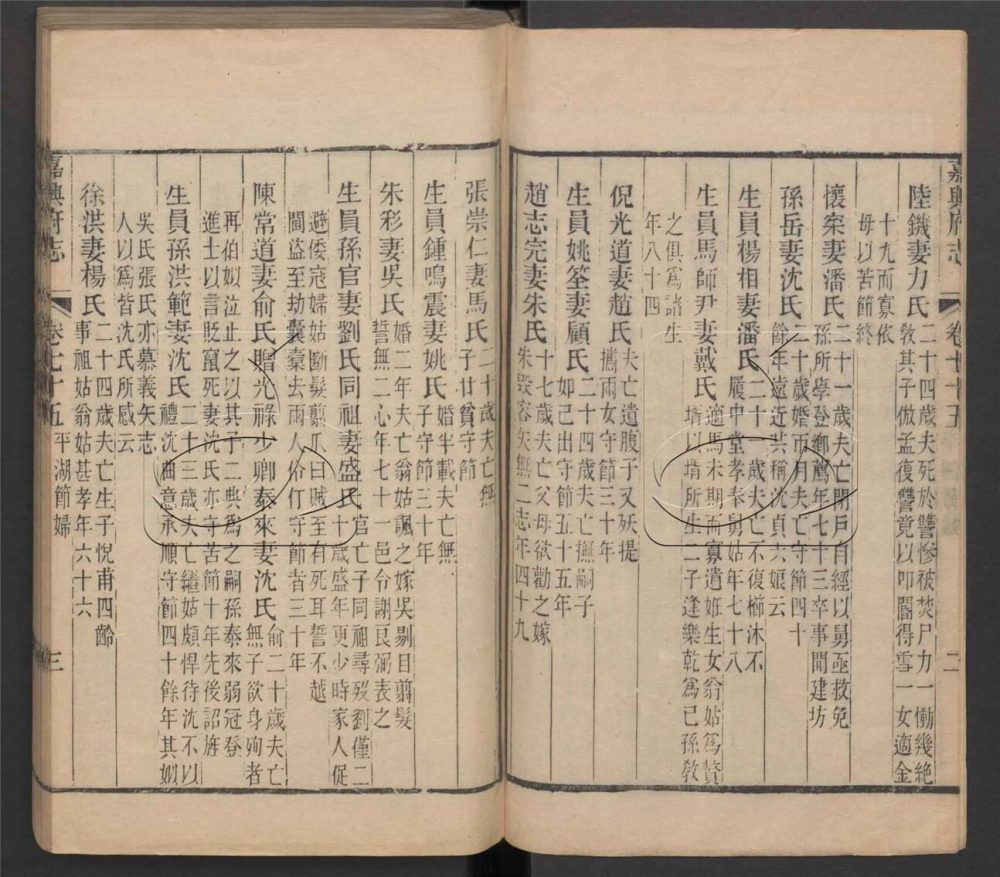 嘉興府志
卷七十五
二
陸鑨妻力氏
二十四歲夫死於讐慘被焚尸力一慟幾絕
教其子倣孟復讐竟以叩閽得雪一女適金
十九而寡依
母以苦節終
懷寀妻潘氏
二十一歲夫亡閉戶自經以舅亟救免
孫所學登鄉薦年七十三卒事聞建坊
孫岳妻沈氏
二十歲婚帀月夫亡守節四十
餘年遠近共稱沈貞六娘云
生員楊相妻潘氏
二十一歲夫亡不復櫛沐不
履中堂孝奉舅姑年七十八
生員馬師尹妻戴氏
適馬未期而寡遺姙生女翁姑爲贅
壻以壻所生二子逢樂乾爲已孫教
之俱爲諸生
年八十四
倪光道妻趙氏
夫亡遺腹子又殀提
攜兩女守節三十年
生員姚筌妻顧氏
二十四歲夫亡撫嗣子
如己出守節五十五年
趙志完妻朱氏
十七歲夫亡父母欲勸之嫁
朱毀容矢無二志年四十九
張崇仁妻馬氏
二十歲夫亡無
子廿貧守節
生員鍾鳴震妻姚氏
婚半載夫亡無
子守節三十年
朱彩妻吳氏
婚二年夫亡翁姑諷之嫁吳剔目翦髮
誓無二心年七十一邑令謝良弼表之
生員孫官妻劉氏同祖妻盛氏
官亡子同祖尋歿劉僅二
十歲盛年更少時家人促
避倭寇婦姑斷髮翦爪曰賊至有死耳誓不越
閫盜至劫囊槖去兩人伶仃守節者三十年
陳常道妻俞氏贈光祿少卿泰來妻沈氏
俞二十歲夫亡
無子欲身殉者
再伯姒泣止之以其子二典爲之嗣孫泰來弱冠登
進士以言貶竄死妻沈氏亦守苦節十年先後詔旌
生員孫洪範妻沈氏
二十三歲夫亡繼姑頗悍待沈不以
禮沈曲意承順守節四十餘年其姒
吳氏張氏亦慕義矢志
人以爲皆沈氏所感云
徐淇妻楊氏
二十四歲夫亡生子悅甫四齡
事祖姑翁姑甚孝年六十六
平湖節婦
嘉興府志
卷七十五
三